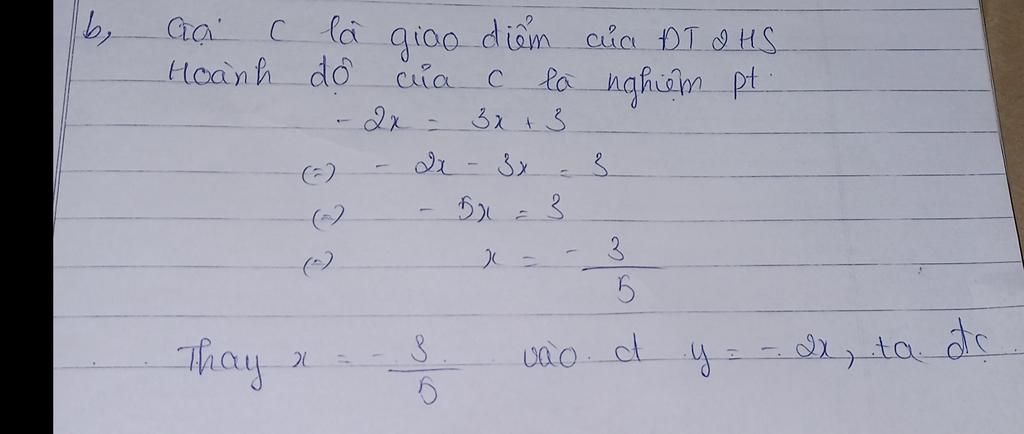 b, Gọi C là giao điểm của ĐT 2 HS
Hoành độ của C là nghiệm pt:
- 2x = 3x + 3
(=) - 2x - 3x = 3
(=) - 5x = 3
(=) x = - 3/5
Thay x = - 3/5 vào d y = - 2x, ta đc